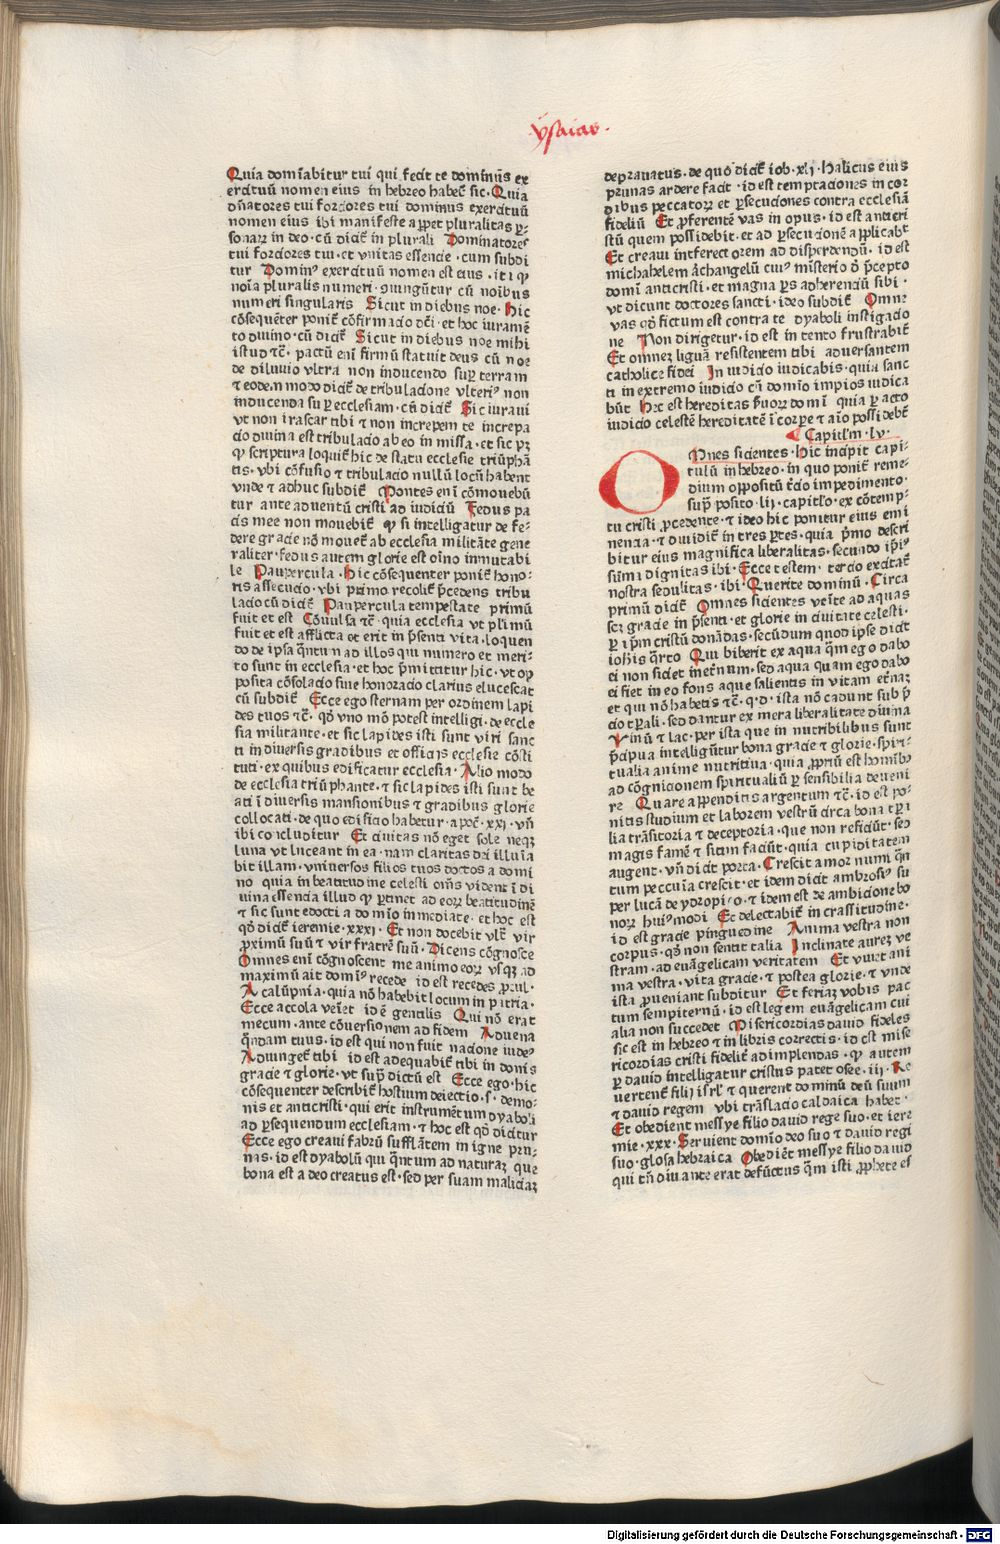 ysaiae.
Quia domīabitur tui qui fecit te dominūs ex
ercituū nomen eius in hebreo habet̄ sic. Quia
dn̄atores tui forciores tui dominus exercituū
nomen eius ibi manifeste apparet pluralitas per
sonarꝝ in deo. cū dicit̄ in plurali Dominatores
tui forciores tui. et vnitas essencie. cum subdi
tur Dominꝰ exercituū nomen est eius. it iꝗ ꝙ
noīa pluralis numeri ꝯiungūtur cū noībus
numeri singularis Sicut in diebus noe. Hic
cōsequēter ponit̄ cōfirmacio dc̄i. et hoc iuramē
to diuino. cū dicit̄ Sicut in diebus noe mihi
istud ⁊c̄. pactū enī firmū statuit deus cū noe
de diluuio vltra non inducendo suꝑ terram
⁊ eodem modo dicit̄ de tribulacione vlteriꝰ non
inducenda super ecclesiam. cū dicit̄ Sic iuraui
vt non irascar tibi ⁊ non increpem te increpa
cio diuina est tribulacio ab eo inmissa. et sic pꝫ
ꝙ scriptura loquit̄ hic de statu ecclesie triūphā
tis. vbi cōfusio ⁊ tribulacio nullū locū habent
vnde ⁊ adhuc subdit̄ Montes enī cōmouebū
tur ante aduentū cristi ad iudiciū Fedus pa
cis mee non mouebit̄ ꝙ si intelligatur de fe-
dere gracie nō mouet̄ ab ecclesia militāte gene
raliter. fedus autem glorie est oīno inmutabi
le Paupercula. Hic cōsequenter ponit̄ hono-
ris assecucio. vbi primo recolit̄ p̄cedens tribu
lacio cū dicit̄ Paupercula tempestate primū
fuit et est Cōuulsa ⁊c̄. quia ecclesia vt plīmū
fuit et est afflicta et erit in p̄senti vita. loquen
do de ipsa q̄ntum ad illos qui numero et meri-
to sunt in ecclesia. et hoc p̄mittitur hic. vt op
posita cōsolacio siue honoracio clarius elucescat
cū subdit̄ Ecce ego sternam per ordinem lapi
des tuos ⁊c̄. qd̄ vno mō potest intelligi. de eccle
sia militante. et sic lapides isti sunt viri sanc
ti in diuersis gradibus et officijs ecclesie cōsti
tuti. ex quibus edificatur ecclesia. Alio modo
de ecclesia triūphante. ⁊ sic lapides isti sunt be
ati ī diuersis mansionibus ⁊ gradibus glorie
collocati. de quo edificio habetur apoc̄. xxj. vn̄
ibi concluditur Et ciuitas nō eget sole neqꝫ
luna vt luceant in ea. nam claritas dei illuīa
bit illam. vniuersos filios tuos doctos a domi
no quia in beatitudine celesti oīns vident ī di
uina essencia illud ꝙ ꝑtinet ad eorꝝ beatitudinē
⁊ sic sunt edocti a domīo inmediate. et hoc est
qd̄ dicit̄ ieremie. xxxj. Et non docebit vlt̄ vir
ꝓximū suū ⁊ vir fratrē suū. Dicens cōgnosce
Omnes enī cōgnoscent me animo eorꝝ vsqꝫ ad
maximū ait domīs recede id est recedes ꝓcul.
A calūpnia. quia nō habebit locum in patria.
Ecce accola venīet id ē gentilis Qui nō erat
mecum. ante cōuersionem ad fidem Aduena
q̄ndam tuus. id est qui non fuit nacione iudeꝰ
Adiunget̄ tibi id est adequabit̄ tibi in donis
gracie ⁊ glorie. vt supͣ dictū est Ecce ego. hic
cōsequenter describit̄ hostium deiectio. s. demo-
nis et anticristi. qui erit instrumētum dyaboli
ad ꝑsequendum ecclesiam. ⁊ hoc est qd̄ dicitur
Ecce ego creaui fabrū sufflātem in igne pru-
nas. id est dyabolū qui q̄ntum ad naturaꝫ que
bona est a deo creatus est. sed per suam maliciaꝫ
deprauatus. de quo dicit̄ iob. xlj. Halicus eius
prunas ardere facit. id est temptaciones in cor
dibus peccatorꝝ et ꝑsecuciones contra ecclesiā
fideliū Et ꝓferentē vas in opus. id est anticri
stū quem possidebit. et ad ꝑsecucionē applicabt̄
Et creaui interfectorem ad disperdendū. id est
michahelem archangelū cuiꝰ misterio d̄ p̄cepto
domī anticristi. et magna ꝑs adherenciū sibi.
vt dicunt doctores sancti. ideo subdit̄ Omne
vas qd̄ fictum est contra te dyaboli instigacio
ne Non dirigetur. id est in tento frustrabit̄
Et omneꝫ liguā resistentem tibi aduersantem
catholice fidei In iudicio iudicabis. quia sanc
ti in extremo iudicio cū domīo impios iudica
būt Hec est hereditas ẜuorꝝ domī quia ꝑacto
iudicio celestē hereditatē ī corpe ⁊ aīo possidebt̄
Capitl'm. lv.
OMnes sicientes. Hic incipit capi-
tulū in hebreo. in quo ponit̄ reme-
dium oppositū t̄cio impedimento.
supͣ posito. lij. capitl'o. ex cōtemp-
tu cristi ꝓcedente. ⁊ ideo hic ponitur eius emi
nencia. ⁊ diuidit̄ in tres ꝑtes. quia p̄mo descri
bitur eius magnifica liberalitas. secundo ip̄iꝰ
sūma dignitas ibi. Ecce testem. tercio excitat̄
nostra sedulitas. ibi. Querite dominū. Circa
primū dicit̄ Omnes sicientes veīte ad aquas
scꝫ gracie in p̄senti. et glorie in ciuitate celesti.
ꝑ ip̄m cristū donādas. secūdum quod ipse dicit
iohīs q̄rto Qui biberit ex aqua q̄m ego dabo
ei non siciet inet̄num. sed aqua quam ego dabo
ei fiet in eo fons aque salientis in vitam et̄naꝫ
et qui nō habetis ⁊c̄. q. d. ista nō cadunt sub p̄
cio tꝑali. sed dantur ex mera liberalitate diuina
Vinū ⁊ lac. per ista que in nutribilibus sunt
p̄cipua intelligūtur bona gracie ⁊ glorie. spiri-
tualia anime nutritiua. quia ꝓpriū est homībꝰ
ad cōgnicionem spiritualiū ꝑ sensibilia deueni
re Quare appenditis argentum ⁊c̄. id est po-
nitis studium et laborem vestrū circa bona tꝑi
lia trāsitoria ⁊ deceptoria. que non reficiūt. sed
magis famē ⁊ sitim faciūt. quia cupiditatem
augent. vn̄ dicit poeta. Crescit amor numi q̄n
tum peccunia crescit. et idem dicit ambrosiꝰ su
per lucā de ydropico. ⁊ idem est de ambicione bo
norꝝ huiꝰmodi Et delectabit̄ in crassitudine.
id est gracie pinguedine Anima vestra non
corpus. qd̄ non sentit talia Inclinate aureꝫ ve
stram. ad euāgelicam veritatem Et viuet ani
ma vestra. vita gracie. ⁊ postea glorie. ⁊ vnde
ista ꝓueniant subditur Et feriaꝫ vobis pac
tum sempiternū. id est legem euāgelicam cui
alia non succedet Misericordias dauid fideles
sic est in hebreo ⁊ in libris correctis. id est mise
ricordias cristi fidelit̄ adimplendas. ꝙ autem
ꝑ dauid intelligatur cristus patet osee. iij. Re
uertent̄ filij isrl' ⁊ querent dominū deū suum
⁊ dauid regem vbi trāslacio caldaica habet.
Et obedient messye filio dauid rege suo. et iere
mie. xxx. Seruient domīo deo suo ⁊ dauid regi
suo. glosa hebraica Obediēt messye filio dauid
qui tn̄ diu ante erat defūctus q̄m isti ꝓphete es
Digitalisierung gefördert durch die Deutsche Forschungsgemeinschaft - DFG